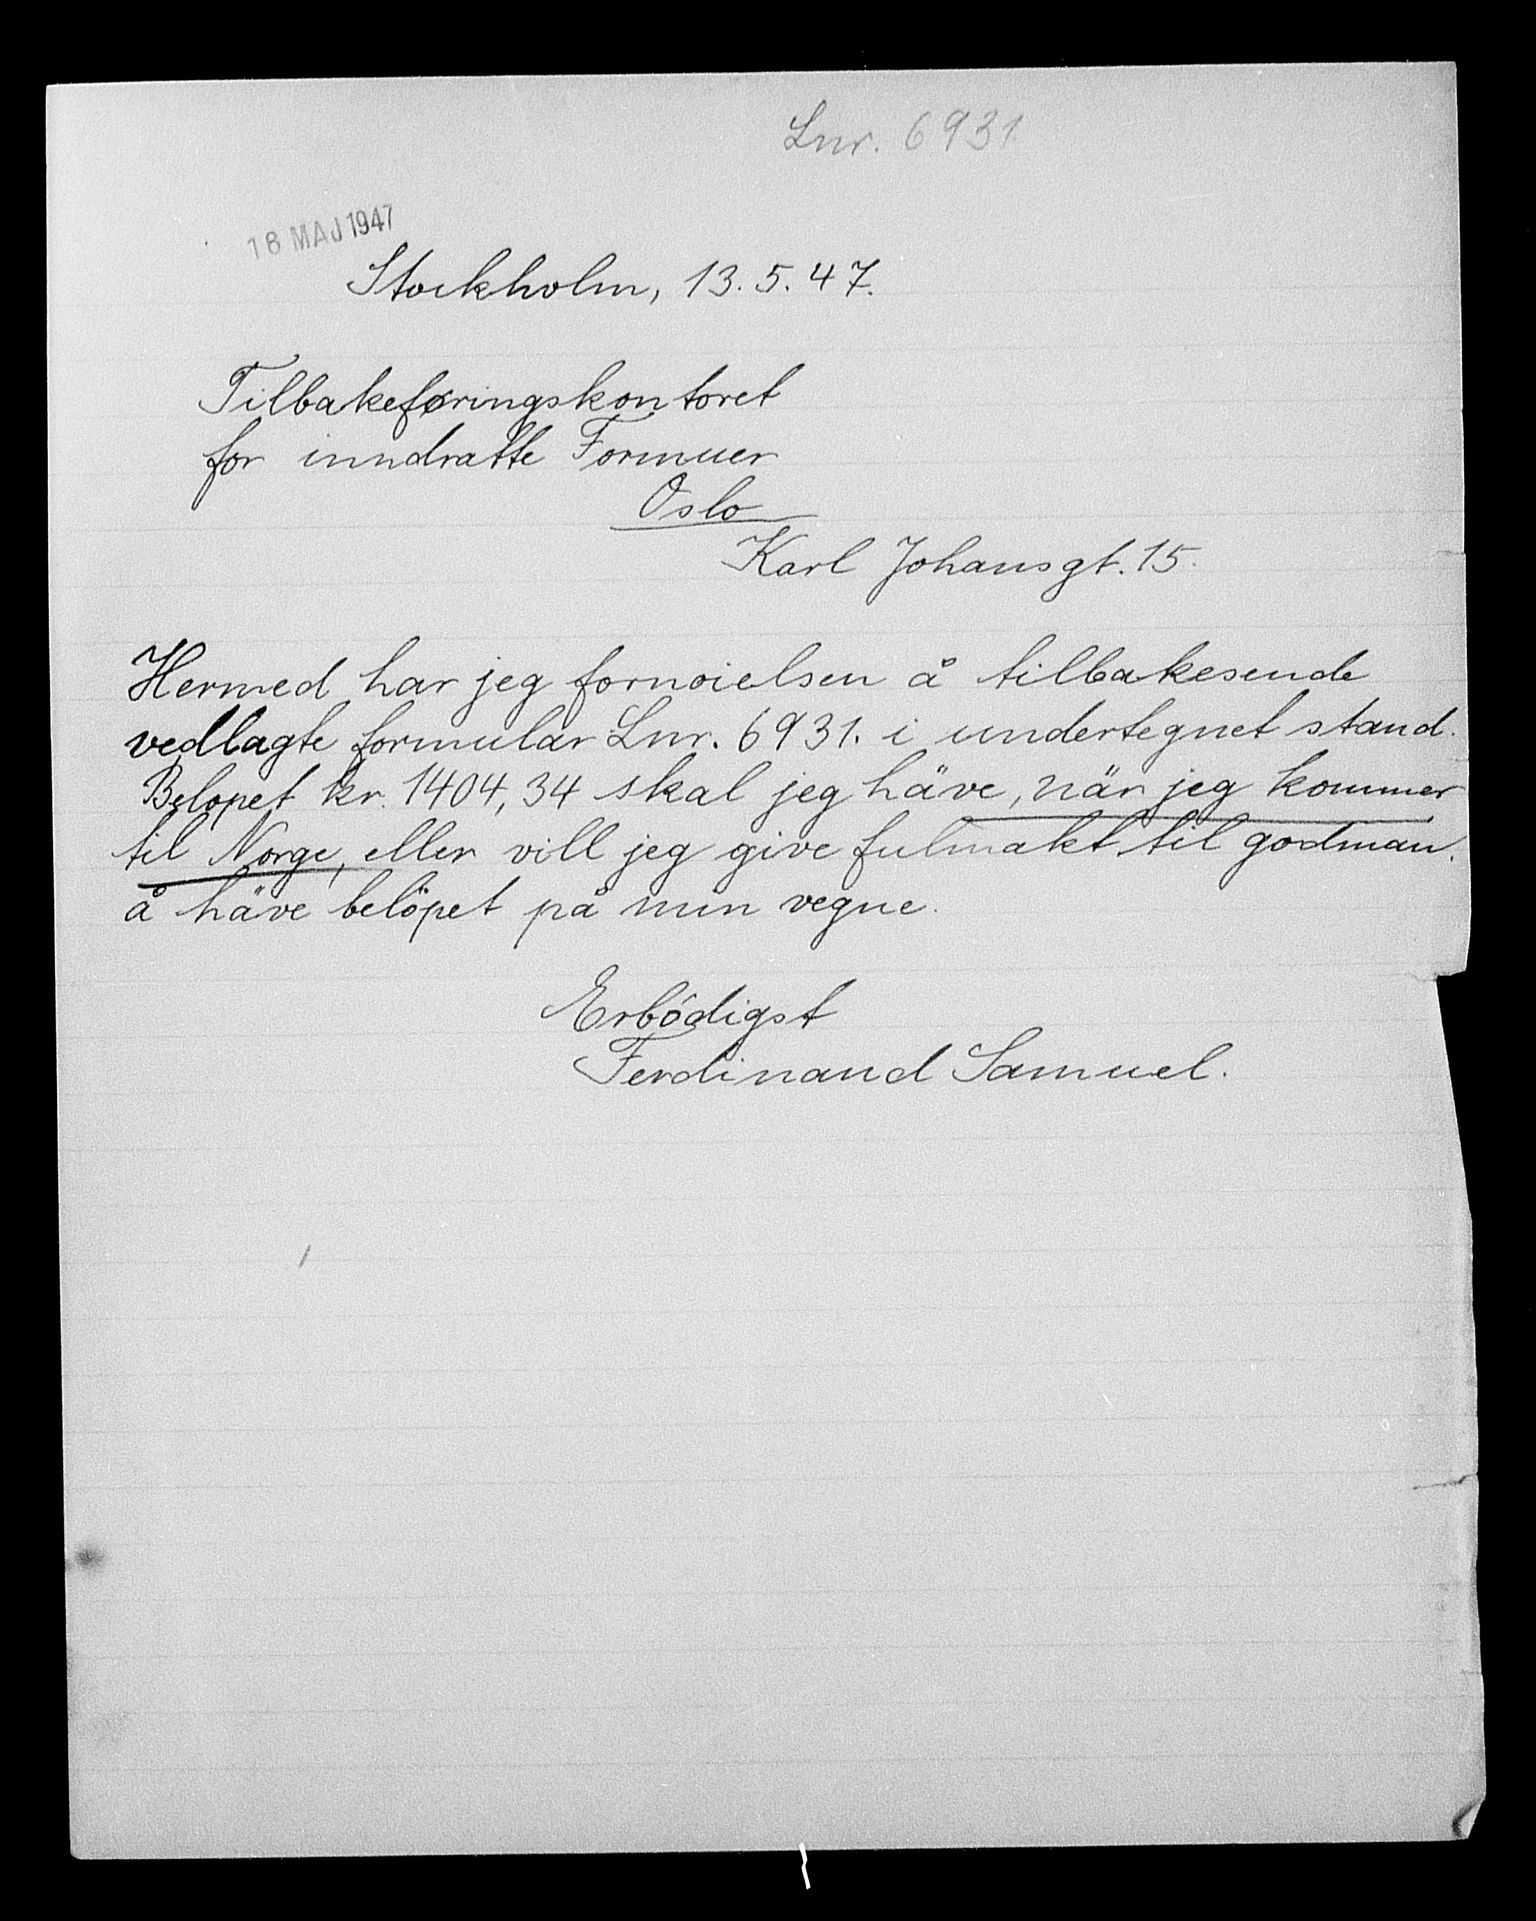 Lnr. 6931
16 MAJ 1947
Stockholm, 13.5.47.
Tilbakeføringskontoret
for inndratte Formuer
Oslo
Karl Johansgt. 15.
Hermed har jeg fornoielsen å tilbakesende
vedlagte formular Lnr. 6931. i undertegnet stand.
Belopet kr. 1404,34 skal jeg häve, når jeg kommer
til Norge, eller vill jeg give fulmakt til godman.
å häve belöpet på min vegne.
Erbödigst
Ferdinand Samuel.